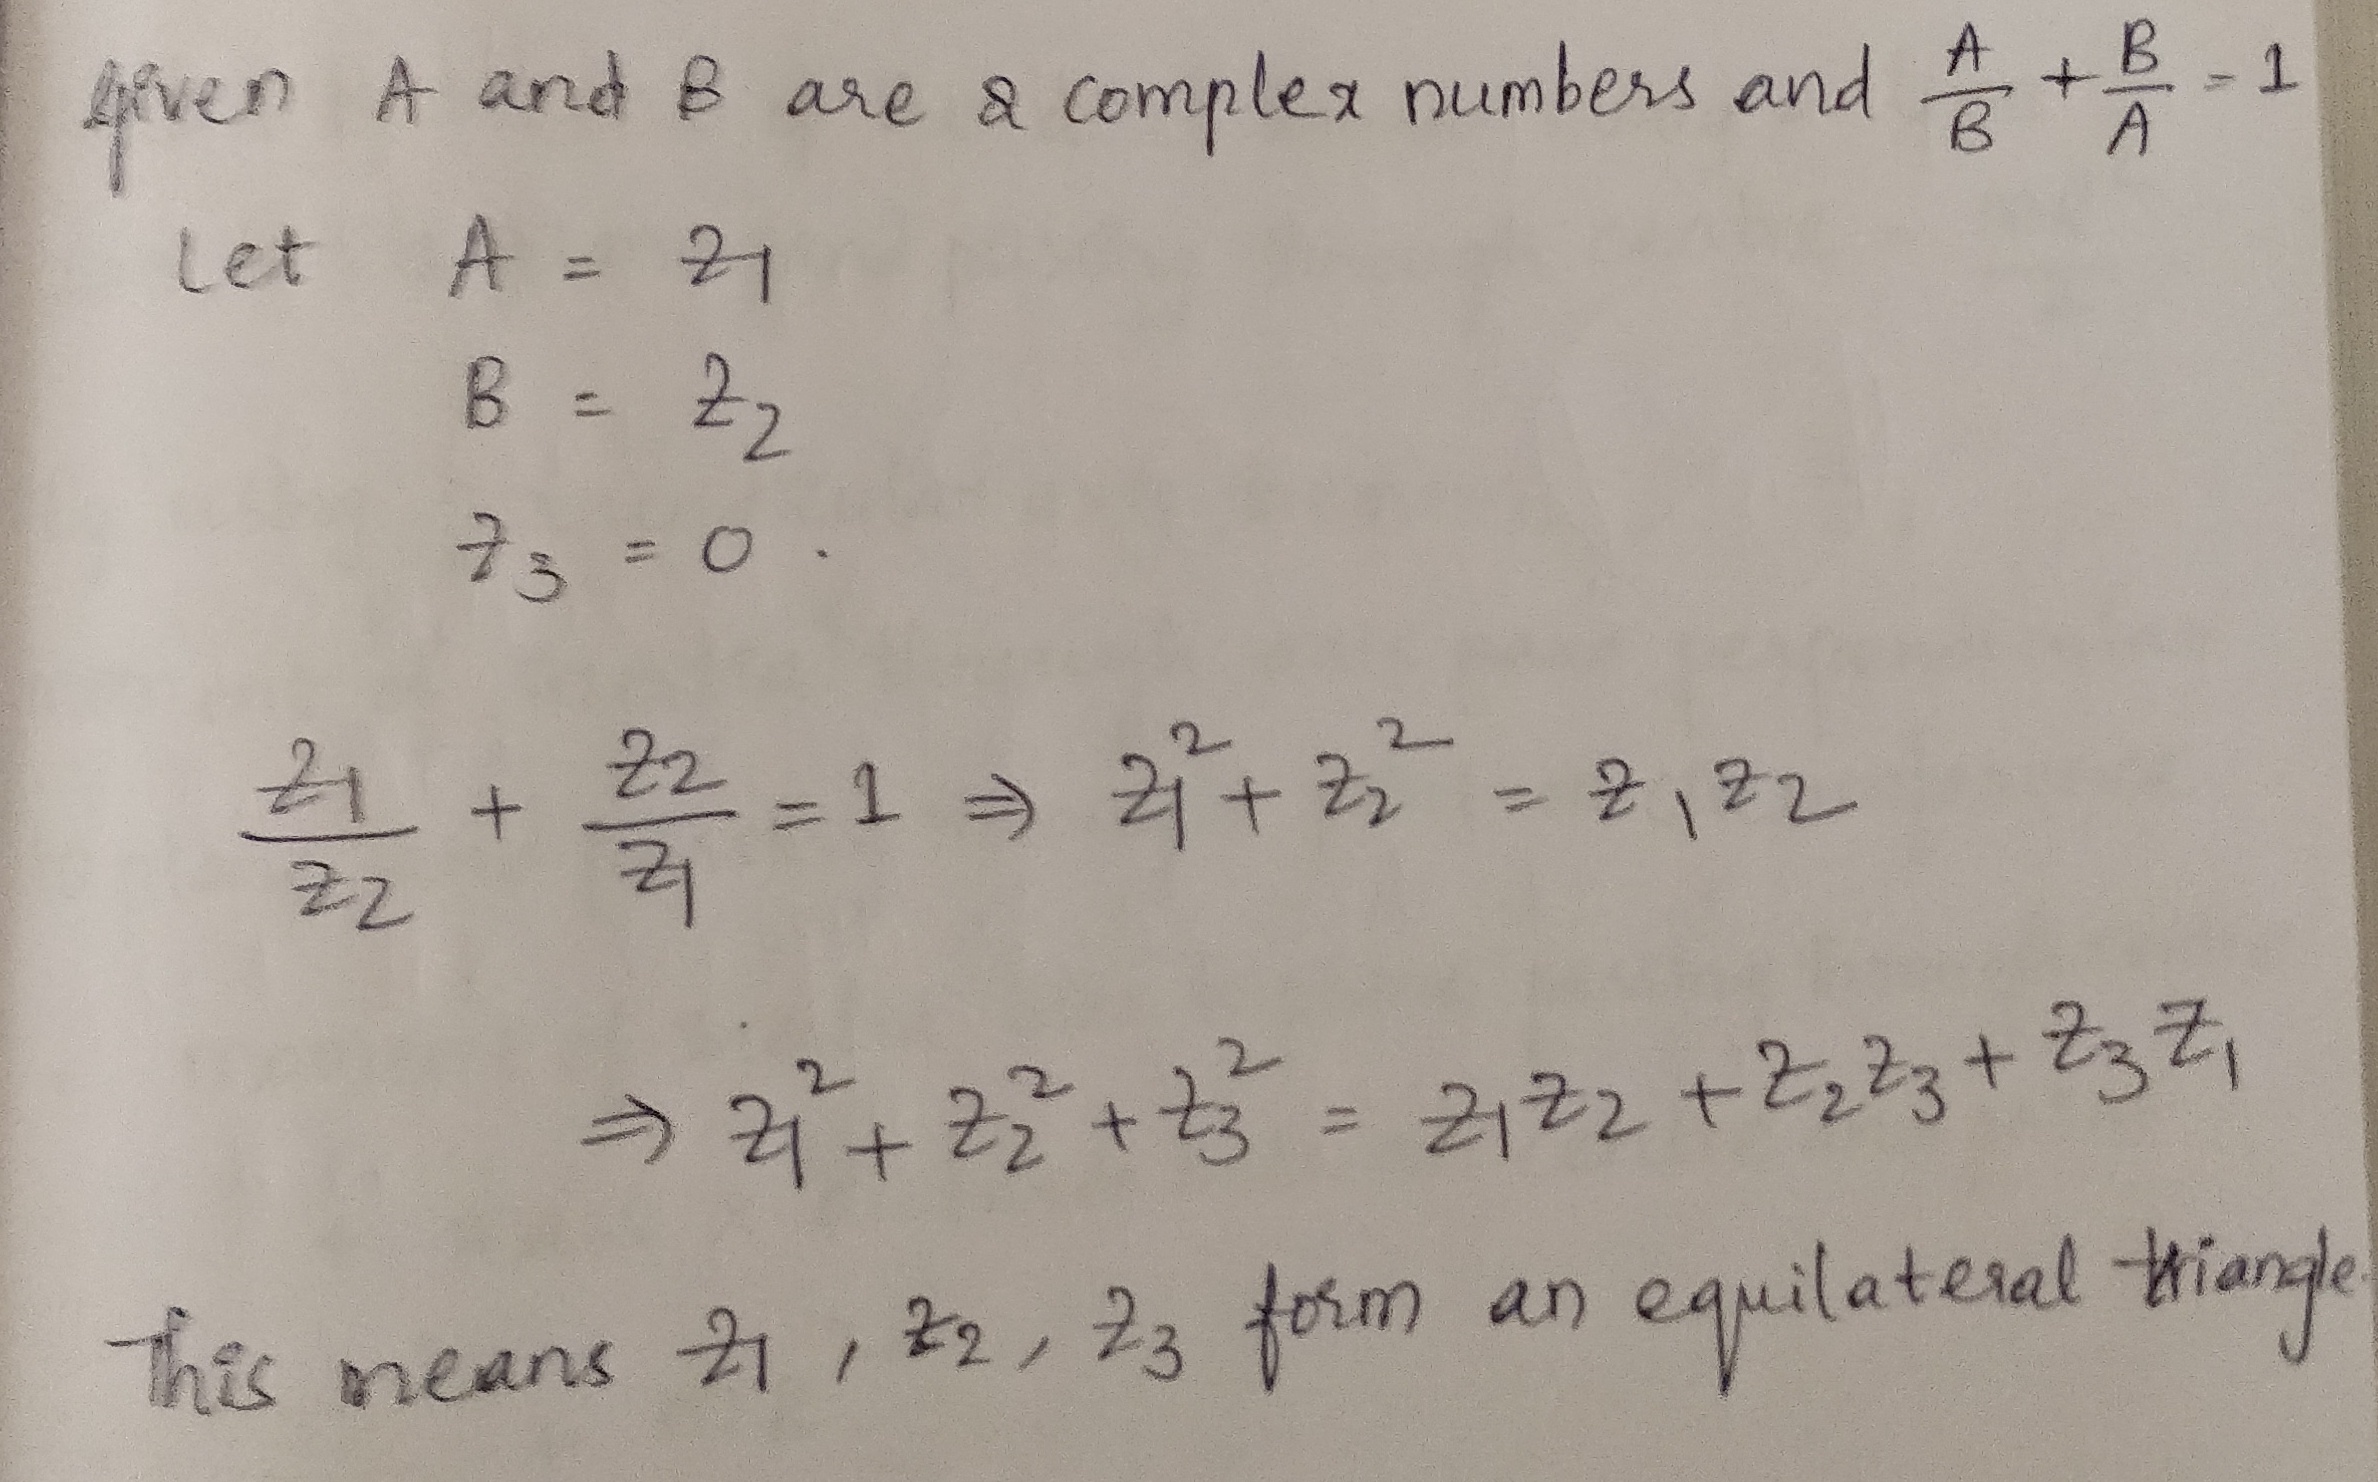 given A and B are 2 complex numbers and A/B + B/A = 1
Let A = z₁
B = z₂
z₃ = 0.
z₁/z₂ + z₂/z₁ = 1 ⇒ z₁² + z₂² = z₁z₂
⇒ z₁² + z₂² + z₃² = z₁z₂ + z₂z₃ + z₃z₁
This means z₁, z₂, z₃ form an equilateral triangle.